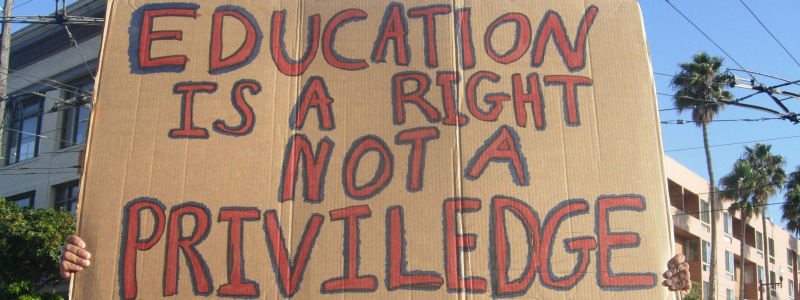 EDUCATION
IS A RIGHT
NOT A
PRIVILEDGE